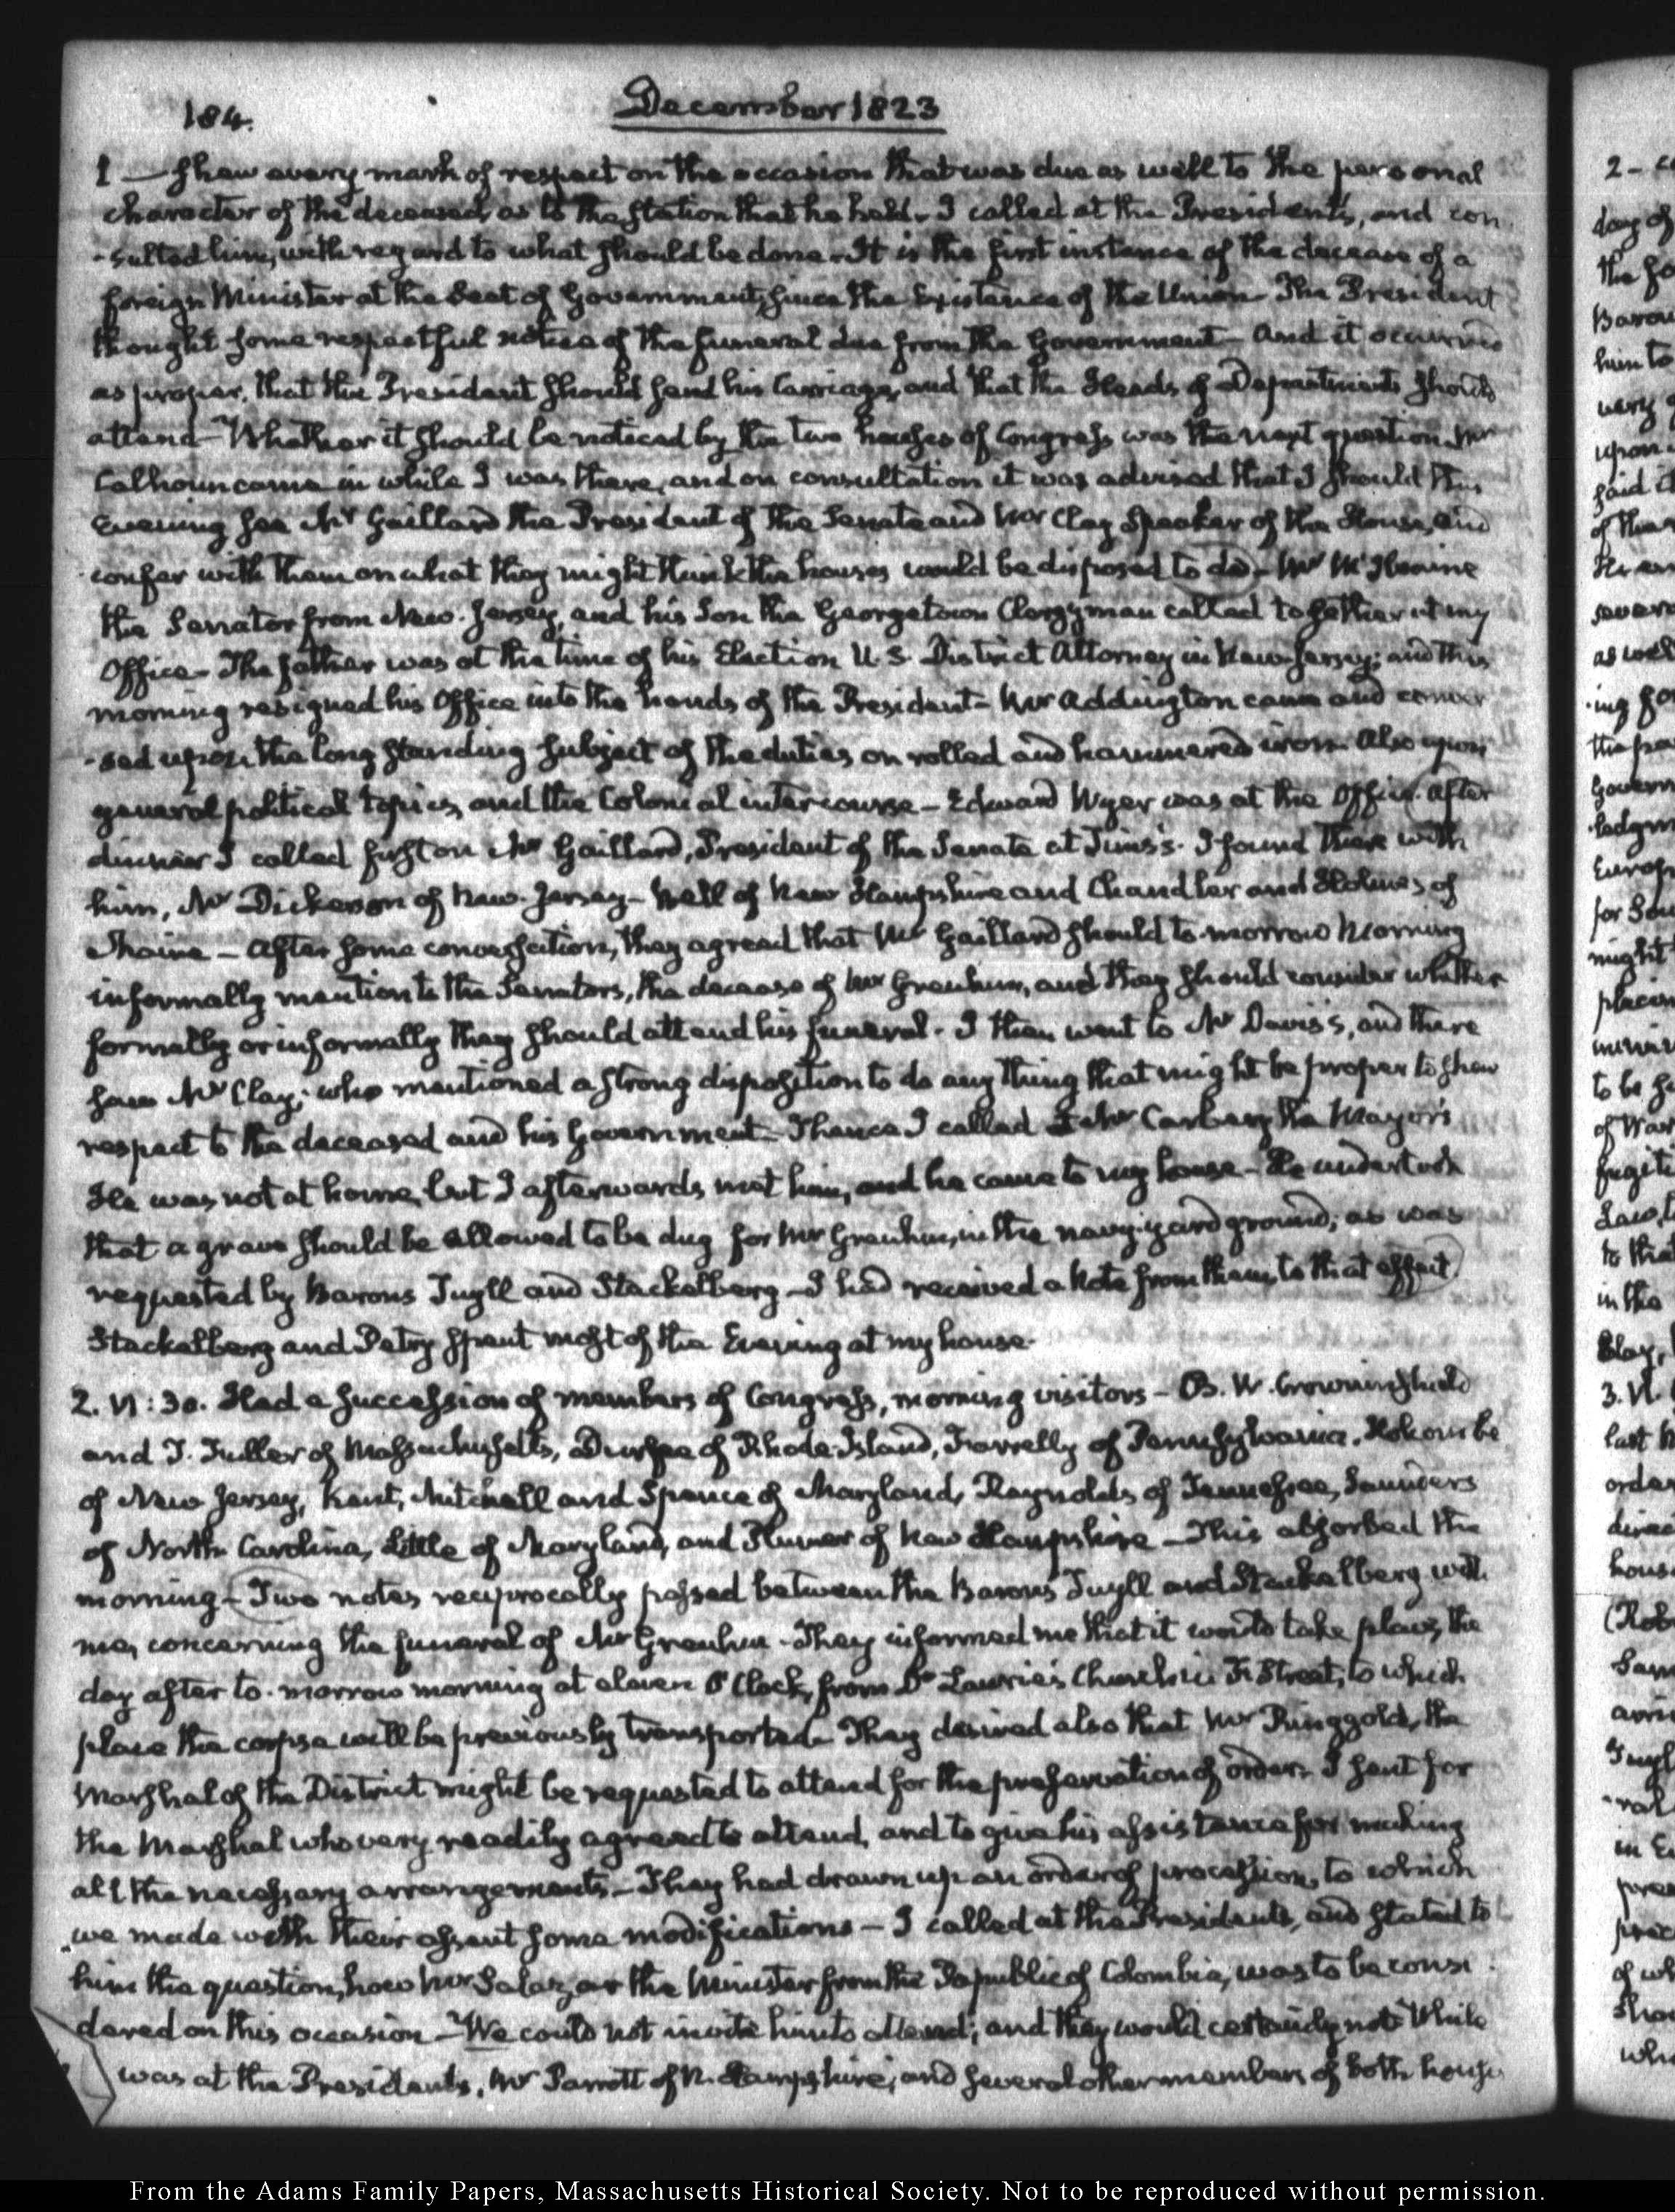 184.
December 1823
1 — shew every mark of respect on the occasion that was due as well to the personal
character of the deceased, as to the station that he held. I called at the Presidents, and con
-sulted him, with regard to what should be done. It is the first instance of the decease of a
foreign Minister at the Seat of Government, since the Existence of the Union. The President
thought some respectful notice of the funeral due from the Government — and it occurred
as proper, that the President should send his Carriage, and that the Heads of Departments should
attend — Whether it should be noticed by the two houses of Congress was the next question. Mr
Calhoun came in while I was there, and on consultation it was advised that I should this
Evening see Mr Gaillard the President of the Senate and Mr Clay Speaker of the House, and
confer with them on what they might think the houses would be disposed to do — Mr McIlvaine
the Senator from New-Jersey, and his Son the Georgetown Clergyman called together at my
Office — The father was at the time of his Election U.S. District Attorney in New-Jersey; and this
morning resigned his Office into the hands of the President — Mr Addington came and conver
-sed upon the long standing subject of the duties on rolled and hammered iron. Also upon
general political topics, and the Colonial intercourse — Edward Wyer was at the Office. After
dinner I called first on Mr Gaillard, President of the Senate at Tims's. I found there with
him, Mr Dickerson of New-Jersey — Bell of New Hampshire and Chandler and Holmes of
Maine — After some conversation, they agreed that Mr Gaillard should to-morrow Morning
informally mention to the Senators, the decease of Mr Greuhm, and they should consider whether
formally or informally they should attend his funeral. I then went to Mr Davis's, and there
saw Mr Clay; who mentioned a strong disposition to do any thing that might be proper to shew
respect to the deceased and his Government — Thence I called at Mr Carbery the Mayor's
He was not at home, but I afterwards met him, and he came to my house — He undertook
that a grave should be allowed to be dug for Mr Greuhm, in the navy-yard ground; as was
requested by Barons Tuyll and Stackelberg — I had received a Note from them, to that effect.
Stackelberg and Petry spent most of the Evening at my house.
2. VI:30. Had a succession of members of Congress, morning visitors — B. W. Crowninshield
and T. Fuller of Massachusetts, Durfee of Rhode-Island, Farrelly of Pennsylvania, Holcombe
of New Jersey, Kent, Mitchell and Spence of Maryland, Reynolds of Tennessee, Saunders
of North Carolina, Little of Maryland, and Plumer of New Hampshire — This absorbed the
morning — Two notes reciprocally passed between the Barons Tuyll and Stackelberg with
me, concerning the funeral of Mr Greuhm — They informed me that it would take place, the
day after to-morrow morning at eleven O'Clock, from Dr Laurie's Church in F. Street; to which
place the corpse will be previously transported. They desired also that Mr Ringgold, the
Marshal of the District might be requested to attend for the preservation of order. I sent for
the Marshal who very readily agreed to attend, and to give his assistance for making
all the necessary arrangements — They had drawn up an order of procession, to which
we made with their assent some modifications — I called at the Presidents, and stated to
him the question, how Mr Salazar the Minister from the Republic of Colombia, was to be consi
dered on this occasion — We could not invite him to attend; and they would certainly not. While
was at the Presidents, Mr Parrott of N. Hampshire, and several other members of both houses
From the Adams Family Papers, Massachusetts Historical Society. Not to be reproduced without permission.